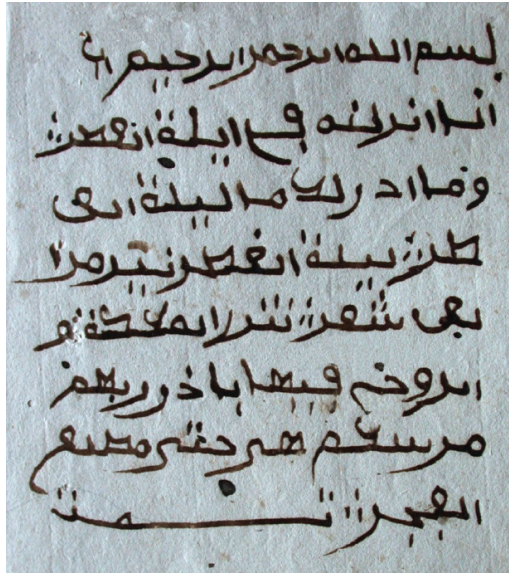 بسم الله الرحمن الرحيم ان
انا انزلنه في ليلة القطر
وما ادرىك ما ليلة الق
طر ليلة القطر خير من ا
لف شهر تنزل الملىكة و
الروح فيها باذن ربهم
من سلم هي حتى مطلع
الفجر تمت